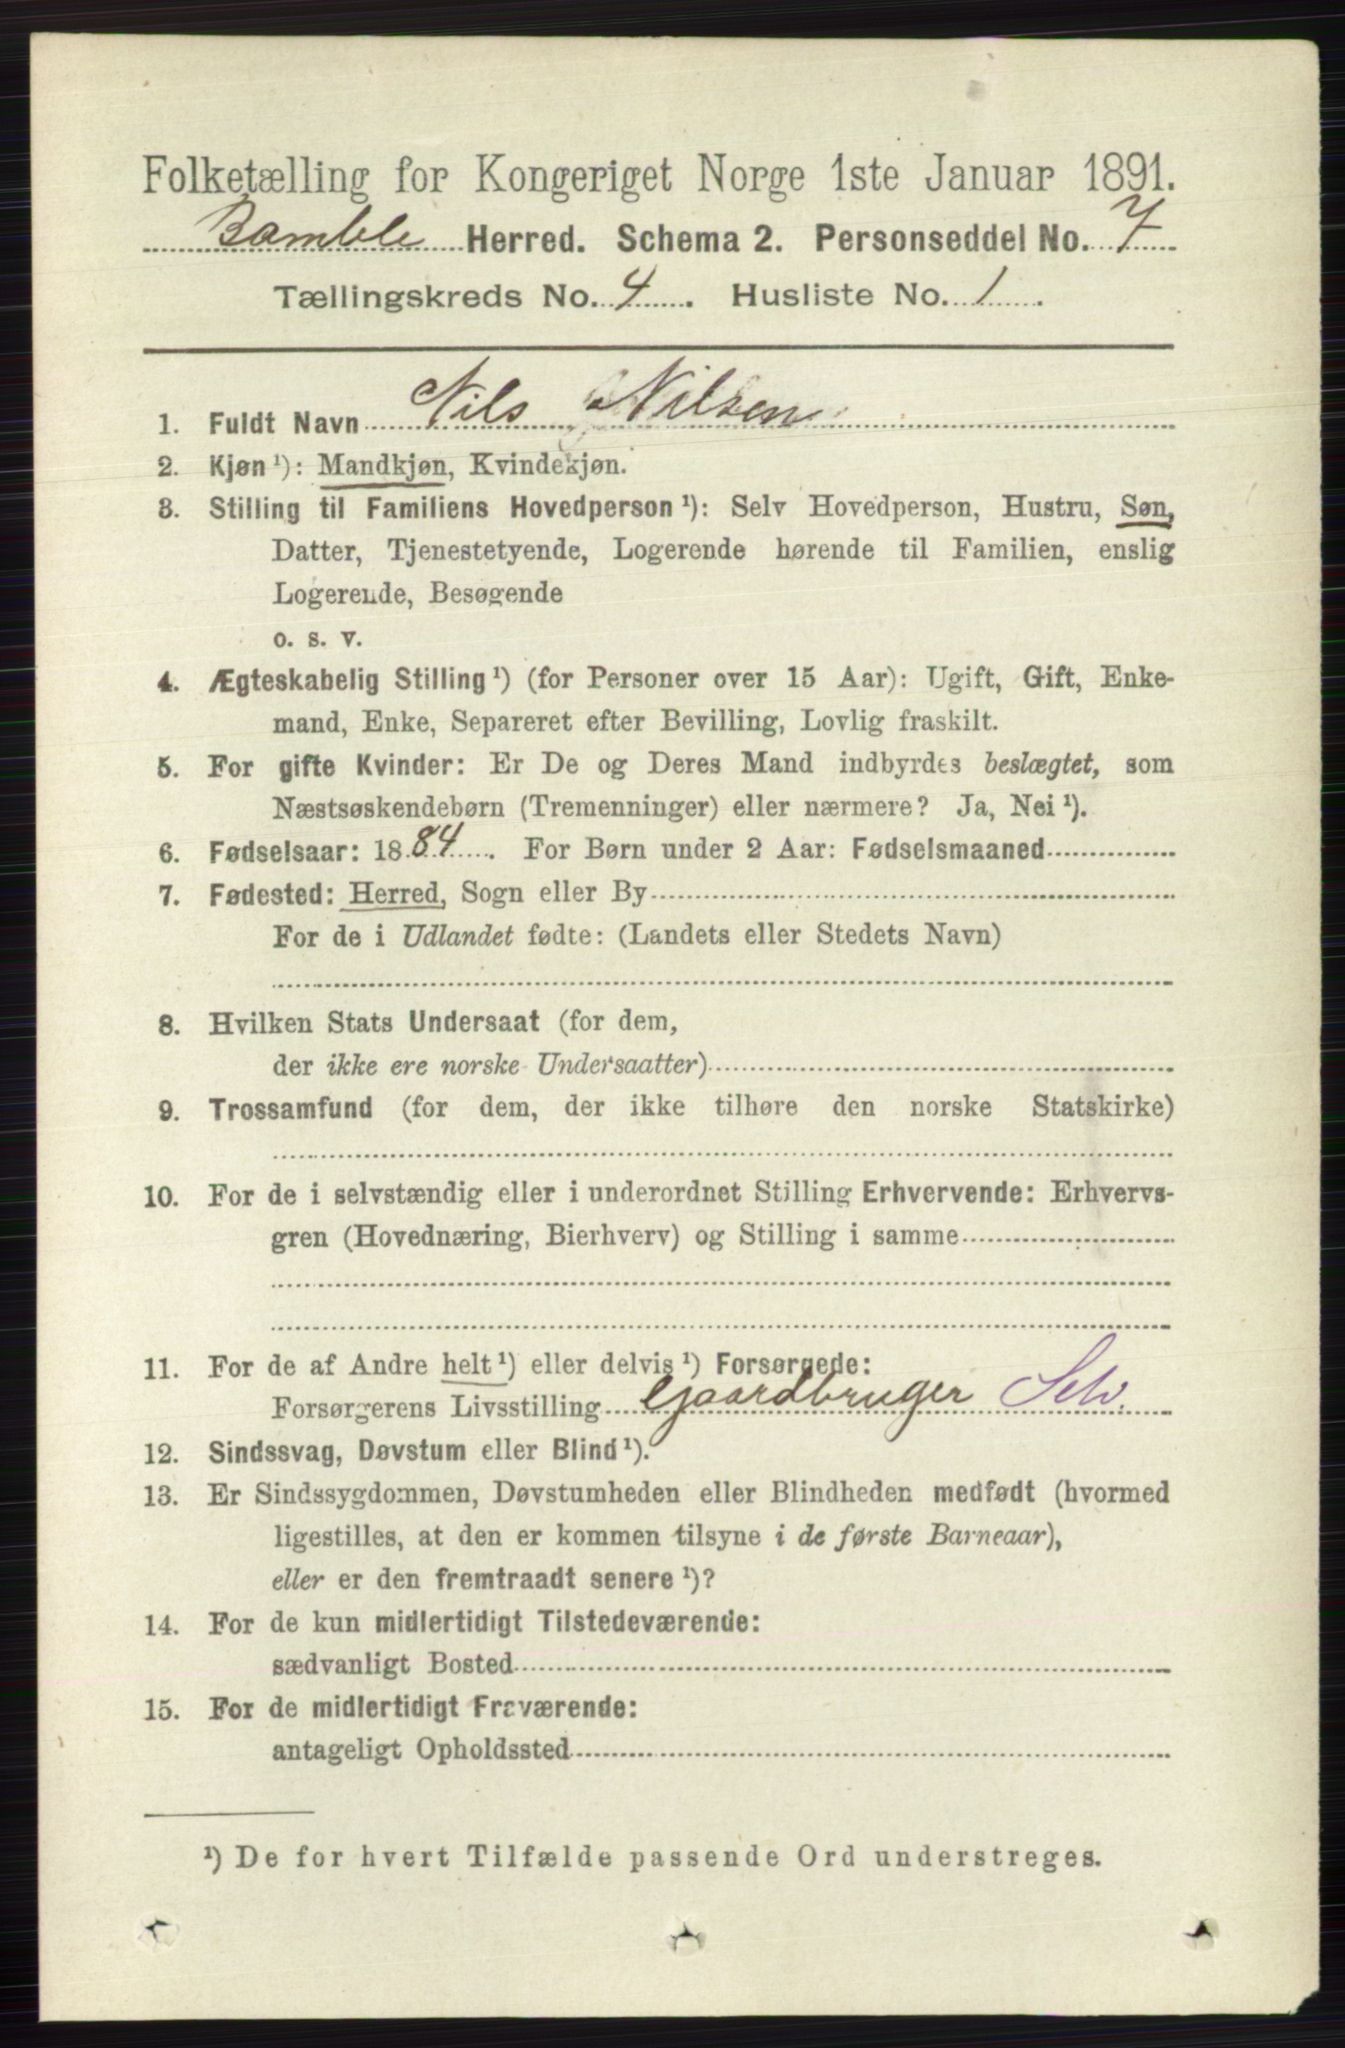 Folketælling for Kongeriget Norge 1ste Januar 1891.
Bamble Herred. Schema 2. Personseddel No. 7
Tællingskreds No. 4. Husliste No. 1.
1. Fuldt Navn Nils Nilsen
2. Kjøn ¹): Mandkjøn, Kvindekjøn.
3. Stilling til Familiens Hovedperson ¹): Selv Hovedperson, Hustru, Søn,
Datter, Tjenestetyende, Logerende hørende til Familien, enslig
Logerende, Besøgende
o. s. v.
4. Ægteskabelig Stilling ¹) (for Personer over 15 Aar): Ugift, Gift, Enke-
mand, Enke, Separeret efter Bevilling, Lovlig fraskilt.
5. For gifte Kvinder: Er De og Deres Mand indbyrdes beslægtet, som
Næstsøskendebørn (Tremenninger) eller nærmere? Ja, Nei ¹).
6. Fødselsaar: 1884. For Børn under 2 Aar: Fødselsmaaned
7. Fødested: Herred, Sogn eller By
For de i Udlandet fødte: (Landets eller Stedets Navn)
8. Hvilken Stats Undersaat (for dem,
der ikke ere norske Undersaatter)
9. Trossamfund (for dem, der ikke tilhøre den norske Statskirke)
10. For de i selvstændig eller i underordnet Stilling Erhvervende: Erhvervs-
gren (Hovednæring, Bierhverv) og Stilling i samme
11. For de af Andre helt ¹) eller delvis ¹) Forsørgede:
Forsørgerens Livsstilling Gaardbruger Selv.
12. Sindssvag, Døvstum eller Blind ¹).
13. Er Sindssygdommen, Døvstumheden eller Blindheden medfødt (hvormed
ligestilles, at den er kommen tilsyne i de første Barneaar),
eller er den fremtraadt senere ¹)?
14. For de kun midlertidigt Tilstedeværende:
sædvanligt Bosted
15. For de midlertidigt Fraværende:
antageligt Opholdssted
¹) De for hvert Tilfælde passende Ord understreges.